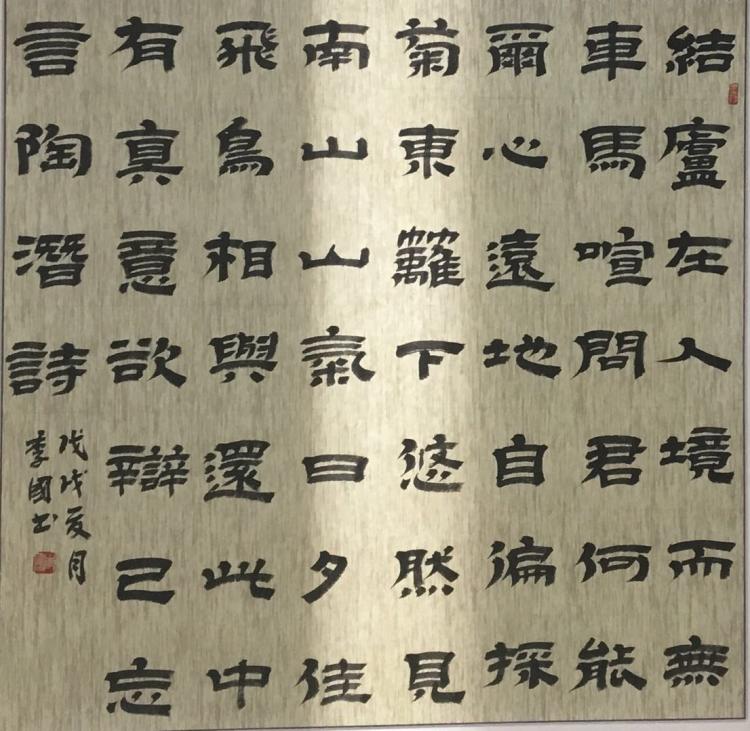 結廬在人境而無
車馬喧問君何能
爾心遠地自偏採
菊東籬下悠然見
南山山氣日夕佳
飛鳥相與還此中
有真意欲辯己忘
言陶潛詩
戊戌夏月
季國书